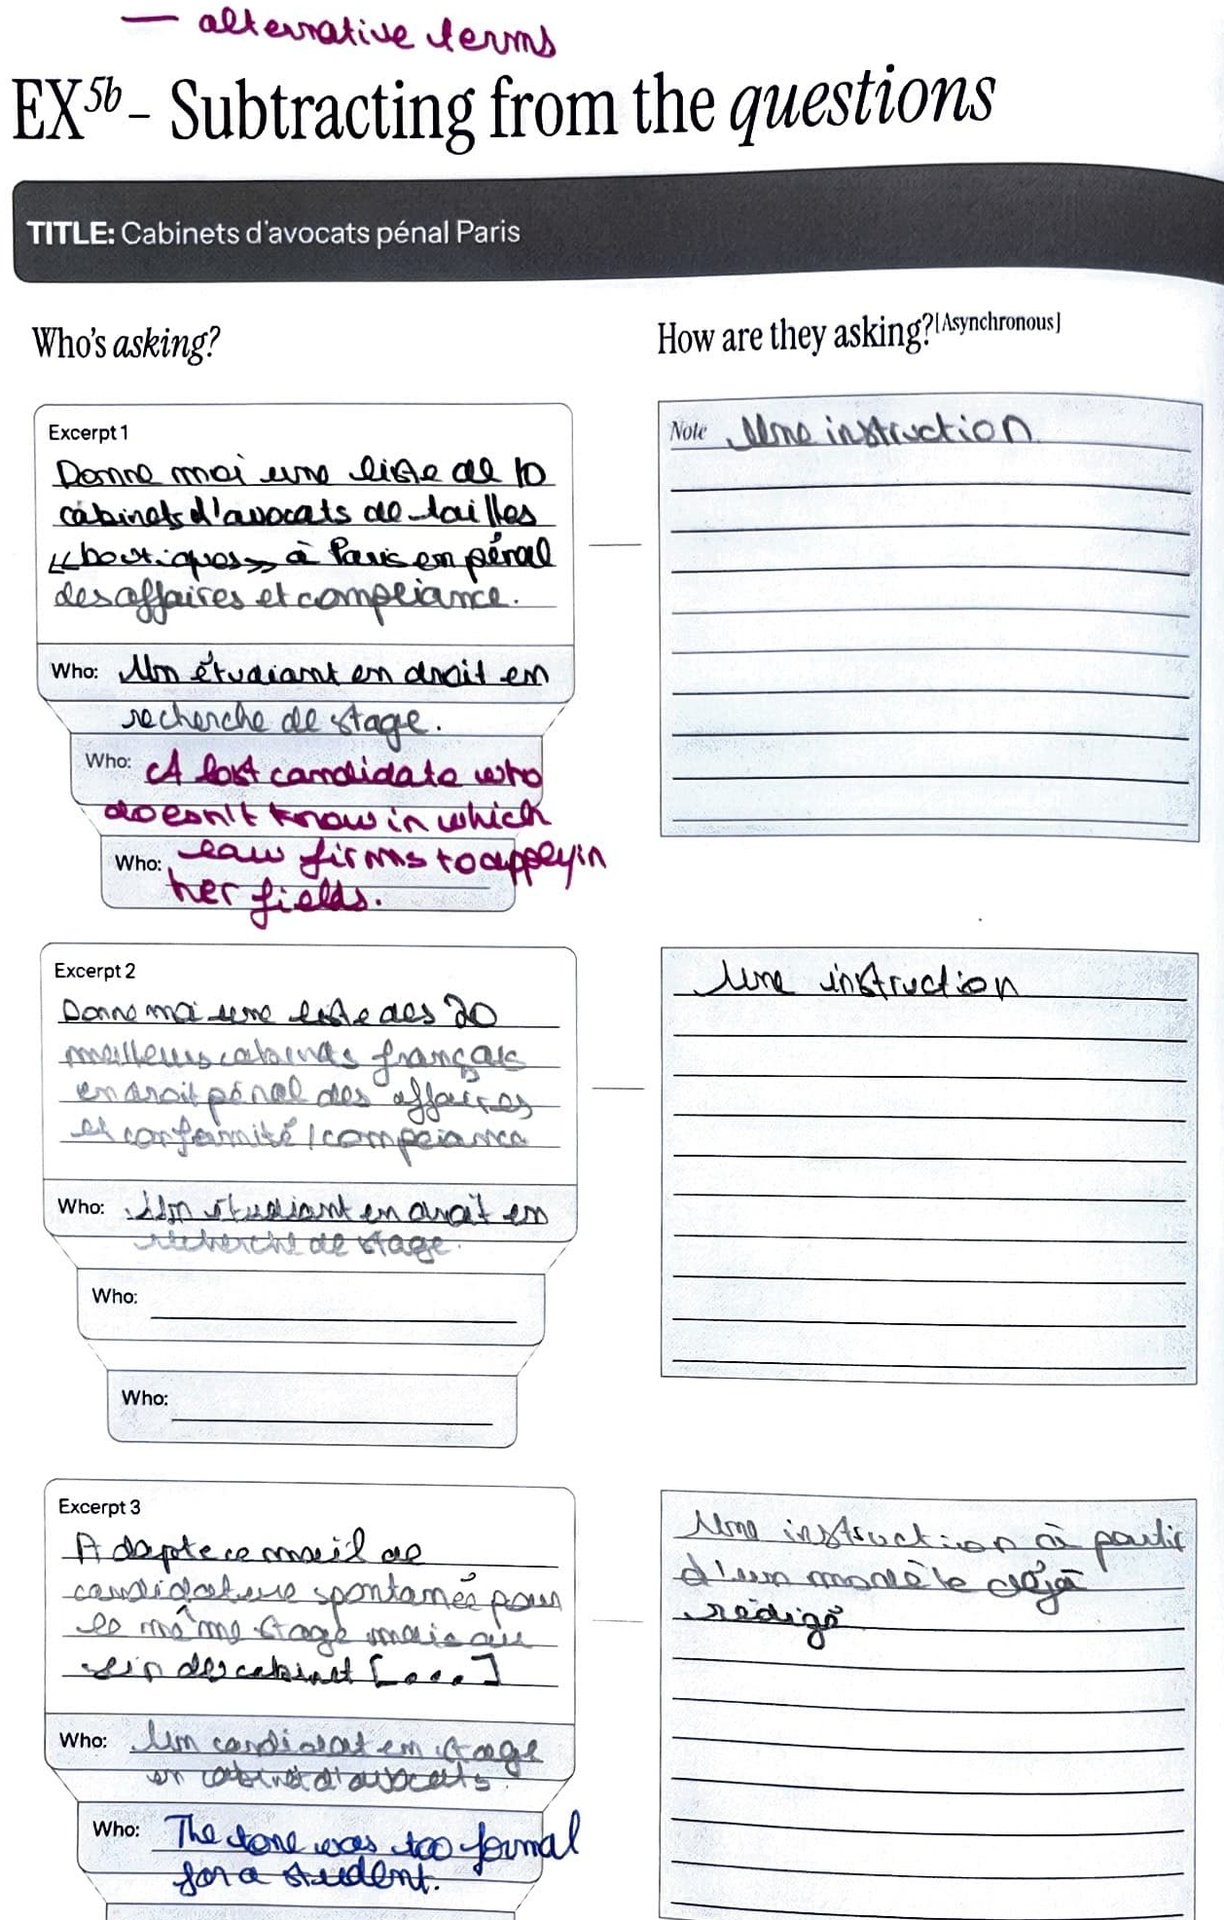 — alternative terms
EX5b – Subtracting from the questions
TITLE: Cabinets d'avocats pénal Paris
Who's asking?
How are they asking?[Asynchronous]
Excerpt 1
Donne moi une liste de 10
cabinets d'avocats de tailles
«boutiques» à Paris en pénal
des affaires et compliance.
Who: Un étudiant en droit en
recherche de stage.
Who: A lost candidate who
doesn't know in which
Who: law firms to apply in
her fields.
Note Une instruction
Excerpt 2
Donne moi une liste des 20
meilleurs cabinets français
en droit pénal des affaires
et conformité/compliance
Who: Un étudiant en droit en
recherche de stage.
Who:
Who:
Une instruction
Excerpt 3
Adapte ce mail de
candidature spontanée pour
le même stage mais au
sein du cabinet [...]
Who: Un candidat en stage
en cabinet d'avocats.
Who: The tone was too formal
for a student.
Une instruction à partir
d'un modèle déjà
rédigé